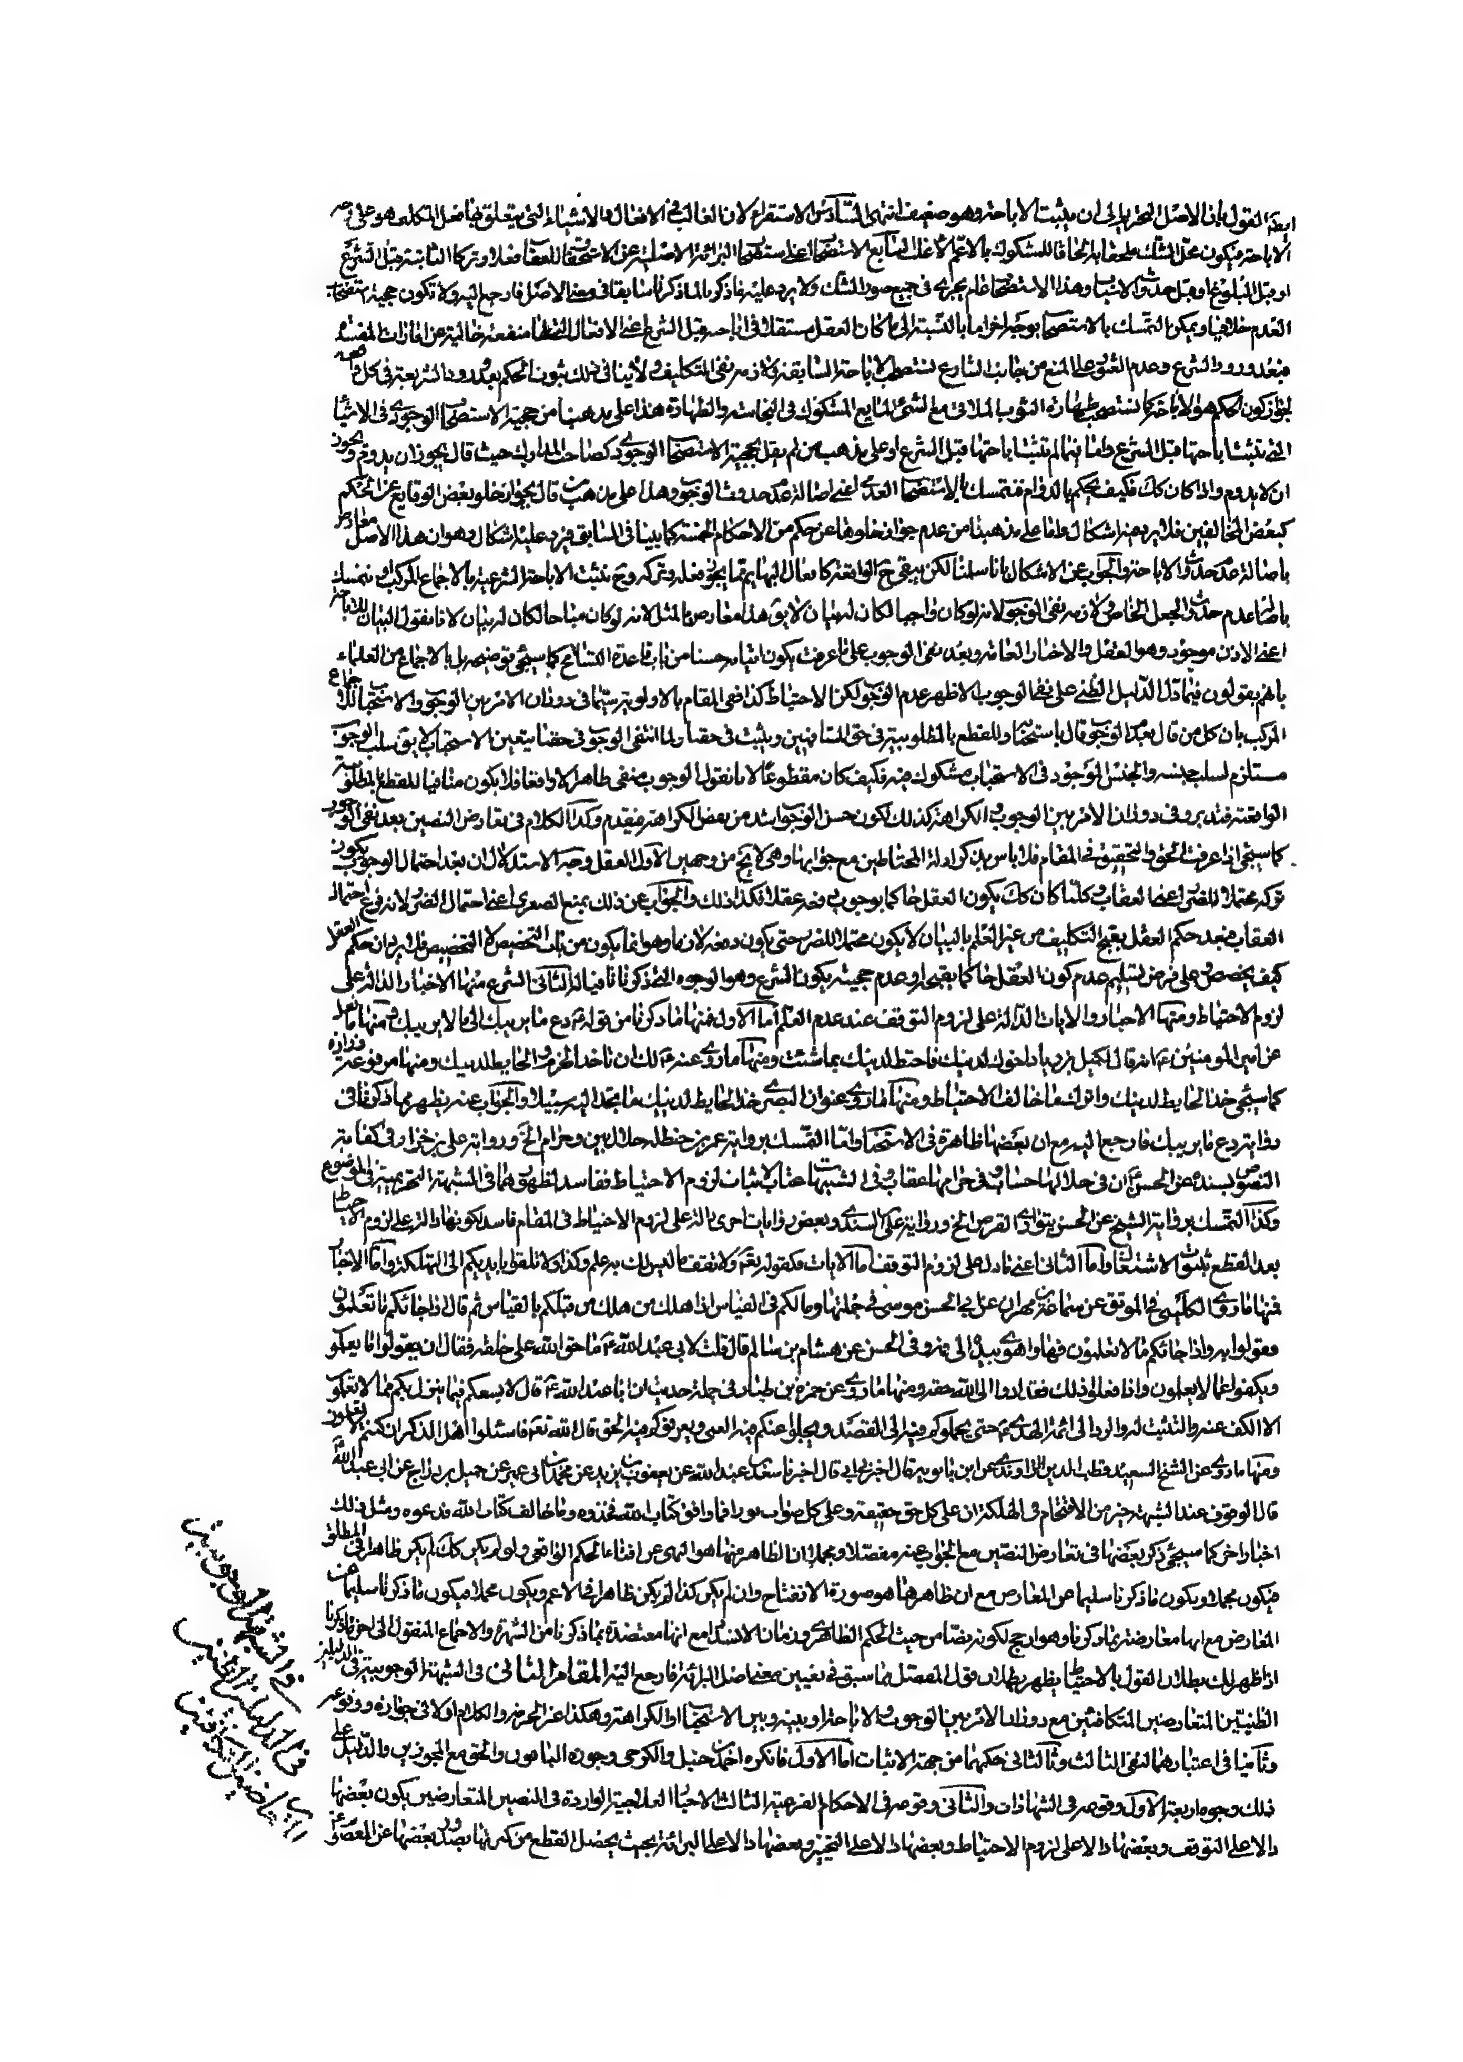 القول بان الاصل التحريم الى ان يثبت الاباحة وهو ضعيف انتهى السادس الاستقراء لان الغالب في الافعال والاشياء التي يتعلق بها فعل المكلف هو على وجه
الاباحة فيكون محل الشك ملحقا به الحاقا للمشكوك بالاعم الاغلب السابع الاستصحاب اعنى استصحاب البرائة الاصلية عن الاستحقاق للعقاب فعلا وتركا الثابتة قبل الشرع
او قبل البلوغ او قبل حدوث الاسباب وهذا الاستصحاب عام يجرى في جميع صور الشك ولا يرد عليه ما ذكر لما ذكرنا سابقا في معنى الاصل فارجع اليه ولا تكون حجية استصحاب
العدم خلافيا ويمكن التمسك بالاستصحاب بوجه اخر اما بالنسبة الى ما كان العقل مستقلا في اباحته قبل الشرع اعنى الافعال التى لها منفعة خالية عن امارات المفسدة
فبعد ورود الشرع وعدم العثور على المنع من جانب الشارع نستصحب الاباحة السابقة لازمه نفى التكليف ولا ينافى ذلك ثبوت الحكم بعد ورود الشريعة في كل واقعة
لجواز كون الحكم هو الاباحة كما نستصحب طهارة الثوب الملاقى مع الشىء المايع المشكوك في النجاسة والطهارة هذا على مذهبنا من حجية الاستصحاب الوجودى في الاشياء
التى تثبت اباحتها قبل الشرع واما فيما لم تثبت اباحتها قبل الشرع او على مذهب من لم يقل بحجية الاستصحاب الوجودى كصاحب المدارك حيث قال يجوز ان يدوم ويجوز
ان لا يدوم واذا كان كك فكيف يحكم بالدوام فنتمسك بالاستصحاب العدمى اعنى اصالة عدم حدوث الوجوب وهذا على مذهب من قال بجواز خلو بعض الوقايع عن الحكم
كبعض المخالفين فلا يرد فيه اشكال واما على مذهبنا من عدم جواز خلوها عن حكم من الاحكام الخمسة كما بينا في السابق فيرد عليه اشكال وهو ان هذا الاصل معارض
باصالة عدم حدوث الاباحة والجواب عن الاشكال بانا سلمنا لكن يبقى ح الواقعة كافعال البهايم مما يجوز فعله وتركه وح تثبت الاباحة الشرعية بالاجماع المركب او نتمسك
باصالة عدم حدوث الجعل الخاص لازمه نفى الوجوب لانه لو كان واجبا لكان له بيان لا يق هذا معارض بالمثل لانه لو كان مباحا لكان له بيان لانا نقول البيان للاباحة
اعنى الاذن موجود وهو العقل والاخبار العامة وبعد نفى الوجوب على ما عرفت يكون اتيانه حسنا من باب قاعدة التسامح كما سيجئ توضيحه بل بالاجماع من العلماء
بانهم يقولون فيما دل الدليل الظنى على نفى الوجوب الاظهر عدم الوجوب ولكن الاحتياط كذا ففى المقام بالاولوية سيما في دوران الامر بين الوجوب والاستحباب للاجماع
المركب بان كل من قال بعدم الوجوب قال باستحبابه وللقطع بالمطلوبية في حق المشافهين ويثبت في حقنا ولما انتفى الوجوب في حقنا يتعين الاستحباب لا يق سلب الوجوب
مستلزم لسلب جنسه والجنس الموجود في الاستحباب مشكوك فيه فكيف كان مقطوعا لانا نقول الوجوب منفى ظاهرا لا واقعا فلا يكون منافيا للقطع بالمطلوبية
الواقعية فتدبر وفى دوران الامر بين الوجوب والكراهة كذلك لكون حسن الوجوب اشد من بعض الكراهة فيقدم وكذا الكلام في تعارض النصين بعد نفى الوجوب
كما سيجئ اذا عرفت الحق والتحقيق في المقام فلا باس بذكر ادلة المحتاطين مع جوابها وهى لا يخ من وجهين الاول العقل وجه الاستدلال ان بعد احتمال الوجوب يكون
تركه محتملا للضرر اعنى العقاب وكلما كان كك يكون العقل حاكما بوجوب دفعه عقلا فكذا ذلك والجواب عن ذلك بمنع الصغرى اعنى احتمال الضرر لانه فرع احتمال
العقاب فبعد حكم العقل بقبح التكليف من غير العلم بالبيان لا يكون محتملا للضرر حتى يكون دفعه لازما وهو انما يكون من باب التخصص لا التخصيص فلا يرد ان حكم العقل
كيف يخصص على فرض تسليم عدم كون العقل حاكما بقبحه او عدم حجيته يكون الشرع وهو الوجوه التى ذكرناها نافيا له الثانى الشرع منها الاخبار الدالة على
لزوم الاحتياط ومنها الاخبار والايات الدالة على لزوم التوقف عند عدم العلم اما الاول فمنها ما ذكرنا من قوله ع دع ما يريبك الى ما لا يريبك ومنها ما نقل
عن امير المومنين ع انه قال لكميل بن زياد اخوك دينك فاحتط لدينك بما شئت ومنها ما روى عنه ع لك ان تاخذ الحزم والحايطة لدينك ومنها مرفوعة زرارة
كما سيجئ خذ الحايطة لدينك واترك ما خالف الاحتياط ومنها ما روى عنوان البصرى خذ الحايطة لدينك ما تجد اليه سبيلا والجواب عنه يظهر مما ذكرنا في
رواية دع ما يريبك فارجع اليه مع ان بعضها ظاهرة في الاستحباب واما التمسك برواية عمر بن حنظلة حلال بين وحرام الخ ورواية على بن خزاز في كفاية
النصوص بسنده عن الحسن ع ان في حلالها حساب وفى حرامها عقاب وفى الشبهات عتاب لاثبات لزوم الاحتياط ففاسد لظهورهما في الشبهة التحريمية في الموضوع
وكذا التمسك برواية الشيخ عن الحسن يتوارى القرص الخ ورواية على السندى وبعض روايات اخرى دالة على لزوم الاحتياط في المقام فاسد لكونها دالة على لزوم الاحتياط
بعد القطع بثبوت الاشتغال واما الثانى اعنى ما دل على لزوم التوقف اما الايات فكقوله تعالى ولا تقف ما ليس لك به علم وكذا ولا تلقوا بايديكم الى التهلكة واما الاخبار
فمنها ما روى الكلينى في الموثق عن سماعة بن مهران عن ابى الحسن موسى في جملتها ومالكم في القياس اذا هلك من هلك من قبلكم بالقياس ثم قال اذا جائكم ما تعلمون
فقولوا به واذا جائكم ما لا تعلمون فها واهوى بيده الى فيه وفى الحسن عن هشام بن سالم قال قلت لابى عبد الله ع ما حق الله على خلقه فقال ان يقولوا ما يعلمون
ويكفوا عما لا يعلمون واذا فعلوا ذلك فقد ادوا الى الله حقه ومنها ما روى عن حمزة بن طيار في جملة حديث ان ابا عبد الله ع قال لا يسعكم فيما ينزل بكم مما لا تعلمون
الا الكف عنه والتثبت له والرد الى ائمة الهدى ع حتى يحملوكم فيه الى القصد ويجلوا عنكم فيه العمى ويعرفوكم فيه الحق قال الله تعالى فاسئلوا اهل الذكر ان كنتم لا تعلمون
ومنها ما روى عن الشيخ السعيد قطب الدين الراوندى عن ابن بابويه قال اخبرنى ابى قال اخبرنا سعد بن عبد الله عن يعقوب بن يزيد عن محمد بن ابى عمير عن جميل بن دراج عن ابى عبد الله
قال الوقوف عند الشبهة خير من الاقتحام في الهلكة ان على كل حق حقيقة وعلى كل صواب نورا فما وافق كتاب الله فخذوه وما خالف كتاب الله فدعوه ومثل ذلك
اخبار اخر كما سيجئ ذكر بعضها في تعارض النصين مع الجواب عنه مفصلا ومجملا ان الظاهر منها هو النهى عن افتاء الحكم الواقعى ولو لم يكن كك لم يكن ظاهرا في المطلق
فيكون مجملا ويكون ما ذكرنا سليما عن المعارض مع ان ظاهرها هو صورة الانفتاح وان لم يكن كذا لم يكن ظاهرا في الاعم ويكون مجملا فيكون ما ذكرنا سليما عن
المعارض مع انها معارضة بما ذكرنا وهو ارجح لكونه نصا من حيث الحكم الظاهرى وزمان الانسداد مع انها معتضدة بما ذكرنا من الشهرة والاجماع المنقول الى اخر ما ذكرنا
اذا ظهر لك بطلان القول بالاحتياط يظهر بطلان قول المفصل بما سبق في تعيين معنى اصل البرائة فارجع اليه المقام الثانى في الشبهة الوجوبية في الدليلين
الظنيين المتعارضين المتكافئين مع دوران الامر بين الوجوب والاباحة او بينه وبين الاستحباب او الكراهة وهكذا عن الحرمة والكلام اولا في جوازه ووقوعه
وثانيا في اعتبارهما لنفى الثالث وثالثا في حكمهما من جهة الاثبات اما الاول فانكره احمد بن حنبل والكرخى وجوزه الباقون والحق مع المجوزين والدليل على
ذلك وجوه اربعة الاول وقوعه في الشهادات والثانى وقوعه في الاحكام الفرعية الثالث الاخبار العلاجية الواردة في النصين المتعارضين يكون بعضها
دالا على التوقف وبعضها دالا على لزوم الاحتياط وبعضها دالا على التخيير وبعضها دالا على البرائة بحيث يحصل القطع من كثرتها بصدور بعضها عن المعصوم ع